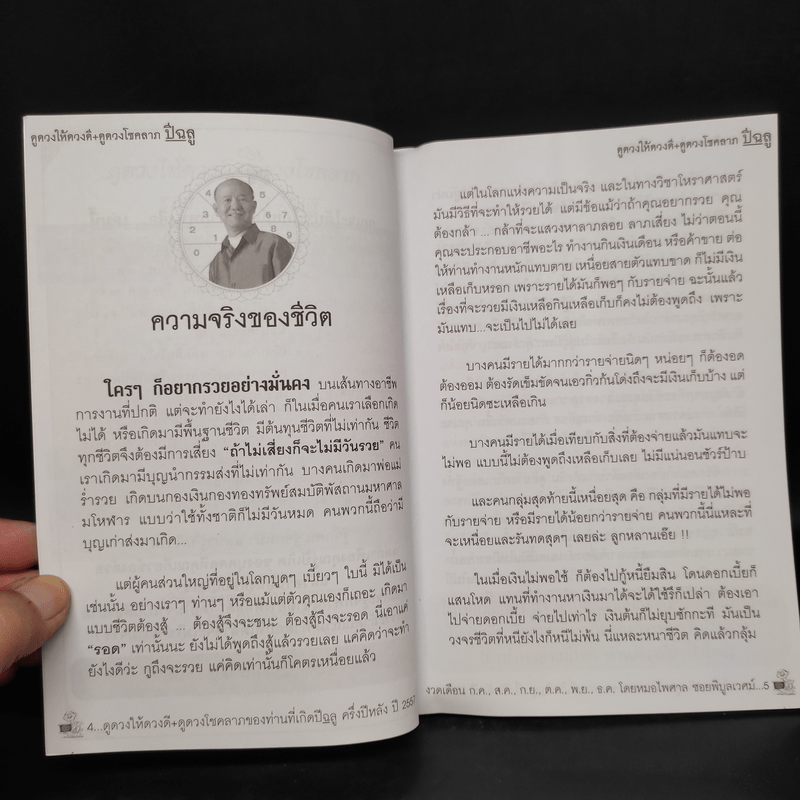 ดูดวงให้ดวงดี+ดูดวงโชคลาภ ปีฉลู
ความจริงของชีวิต
ใครๆ ก็อยากรวยอย่างมั่นคง บนเส้นทางอาชีพ
การงานที่ปกติ แต่จะทำยังไงได้เล่า ก็ในเมื่อคนเราเลือกเกิด
ไม่ได้ หรือเกิดมามีพื้นฐานชีวิต มีต้นทุนชีวิตที่ไม่เท่ากัน ชีวิต
ทุกชีวิตจึงต้องมีการเสี่ยง “ถ้าไม่เสี่ยงก็จะไม่มีวันรวย” คน
เราเกิดมามีบุญนำกรรมส่งที่ไม่เท่ากัน บางคนเกิดมาพ่อแม่
ร่ำรวย เกิดบนกองเงินกองทองทรัพย์สมบัติพัสถานมหาศาล
มโหฬาร แบบว่าใช้ทั้งชาติก็ไม่มีวันหมด คนพวกนี้ถือว่ามี
บุญเก่าส่งมาเกิด...
แต่ผู้คนส่วนใหญ่ที่อยู่ในโลกบูดๆ เบี้ยวๆ ใบนี้ มิได้เป็น
เช่นนั้น อย่างเราๆ ท่านๆ หรือแม้แต่ตัวคุณเองก็เถอะ เกิดมา
แบบชีวิตต้องสู้ ... ต้องสู้จึงจะชนะ ต้องสู้ถึงจะรอด นี่เอาแค่
“รอด” เท่านั้นนะ ยังไม่ได้พูดถึงสู้แล้วรวยเลย แค่คิดว่าจะทำ
ยังไงดีว่ะ กูถึงจะรวย แค่คิดเท่านั้นก็โคตรเหนื่อยแล้ว
4...ดูดวงให้ดวงดี+ดูดวงโชคลาภของท่านที่เกิดปีฉลู ครึ่งปีหลัง ปี 2557
ดูดวงให้ดวงดี+ดูดวงโชคลาภ ปีฉลู
แต่ในโลกแห่งความเป็นจริง และในทางวิชาโหราศาสตร์
มันมีวิธีที่จะทำให้รวยได้ แต่มีข้อแม้ว่าถ้าคุณอยากรวย คุณ
ต้องกล้า ... กล้าที่จะแสวงหาลาภลอย ลาภเสี่ยง ไม่ว่าตอนนี้
คุณจะประกอบอาชีพอะไร ทำงานกินเงินเดือน หรือค้าขาย ต่อ
ให้ท่านทำงานหนักแทบตาย เหนื่อยสายตัวแทบขาด ก็ไม่มีเงิน
เหลือเก็บหรอก เพราะรายได้มันก็พอๆ กับรายจ่าย ฉะนั้นแล้ว
เรื่องที่จะรวยมีเงินเหลือกินเหลือเก็บก็คงไม่ต้องพูดถึง เพราะ
มันแทบ...จะเป็นไปไม่ได้เลย
บางคนมีรายได้มากกว่ารายจ่ายนิดๆ หน่อยๆ ก็ต้องอด
ต้องออม ต้องรัดเข็มขัดจนเอวกิ่วก้นโด่งถึงจะมีเงินเก็บบ้าง แต่
ก็น้อยนิดซะเหลือเกิน
บางคนมีรายได้เมื่อเทียบกับสิ่งที่ต้องจ่ายแล้วมันแทบจะ
ไม่พอ แบบนี้ไม่ต้องพูดถึงเหลือเก็บเลย ไม่มีแน่นอนชัวร์ป้าบ
และคนกลุ่มสุดท้ายนี้เหนื่อยสุด คือ กลุ่มที่มีรายได้ไม่พอ
กับรายจ่าย หรือมีรายได้น้อยกว่ารายจ่าย คนพวกนี้นี่แหละที่
จะเหนื่อยและรันทดสุดๆ เลยล่ะ ลูกหลานเอ๊ย !!
ในเมื่อเงินไม่พอใช้ ก็ต้องไปกู้หนี้ยืมสิน โดนดอกเบี้ยก็
แสนโหด แทนที่ทำงานหาเงินมาได้จะได้ใช้รึก็เปล่า ต้องเอา
ไปจ่ายดอกเบี้ย จ่ายไปเท่าไร เงินต้นก็ไม่ยุบซักกะที มันเป็น
วงจรชีวิตที่หนียังไงก็หนีไม่พ้น นี่แหละหนาชีวิต คิดแล้วกลุ้ม
งวดเดือน ก.ค., ส.ค., ก.ย., ต.ค., พ.ย., ธ.ค. โดยหมอไพศาล ซอยพิบูลเวศม์...5